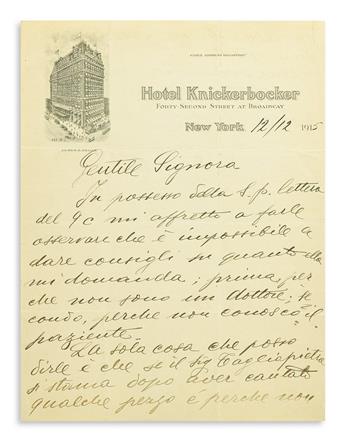 Hotel Knickerbocker
Forty-Second Street at Broadway
New York 12/12 1915
Gentile Signora
In possesso della S. p. lettera
del 9c mi affretto a farle
osservare che è impossibile a
dare consigli su quanto ella
mi domanda; prima, per
che non sono un dottore; se
condo, perche non conosco il
paziente.
La sola cosa che posso
dirle è che se il Sig Tagliapietra
si stanca dopo aver cantato
qualche pezzo è perche non